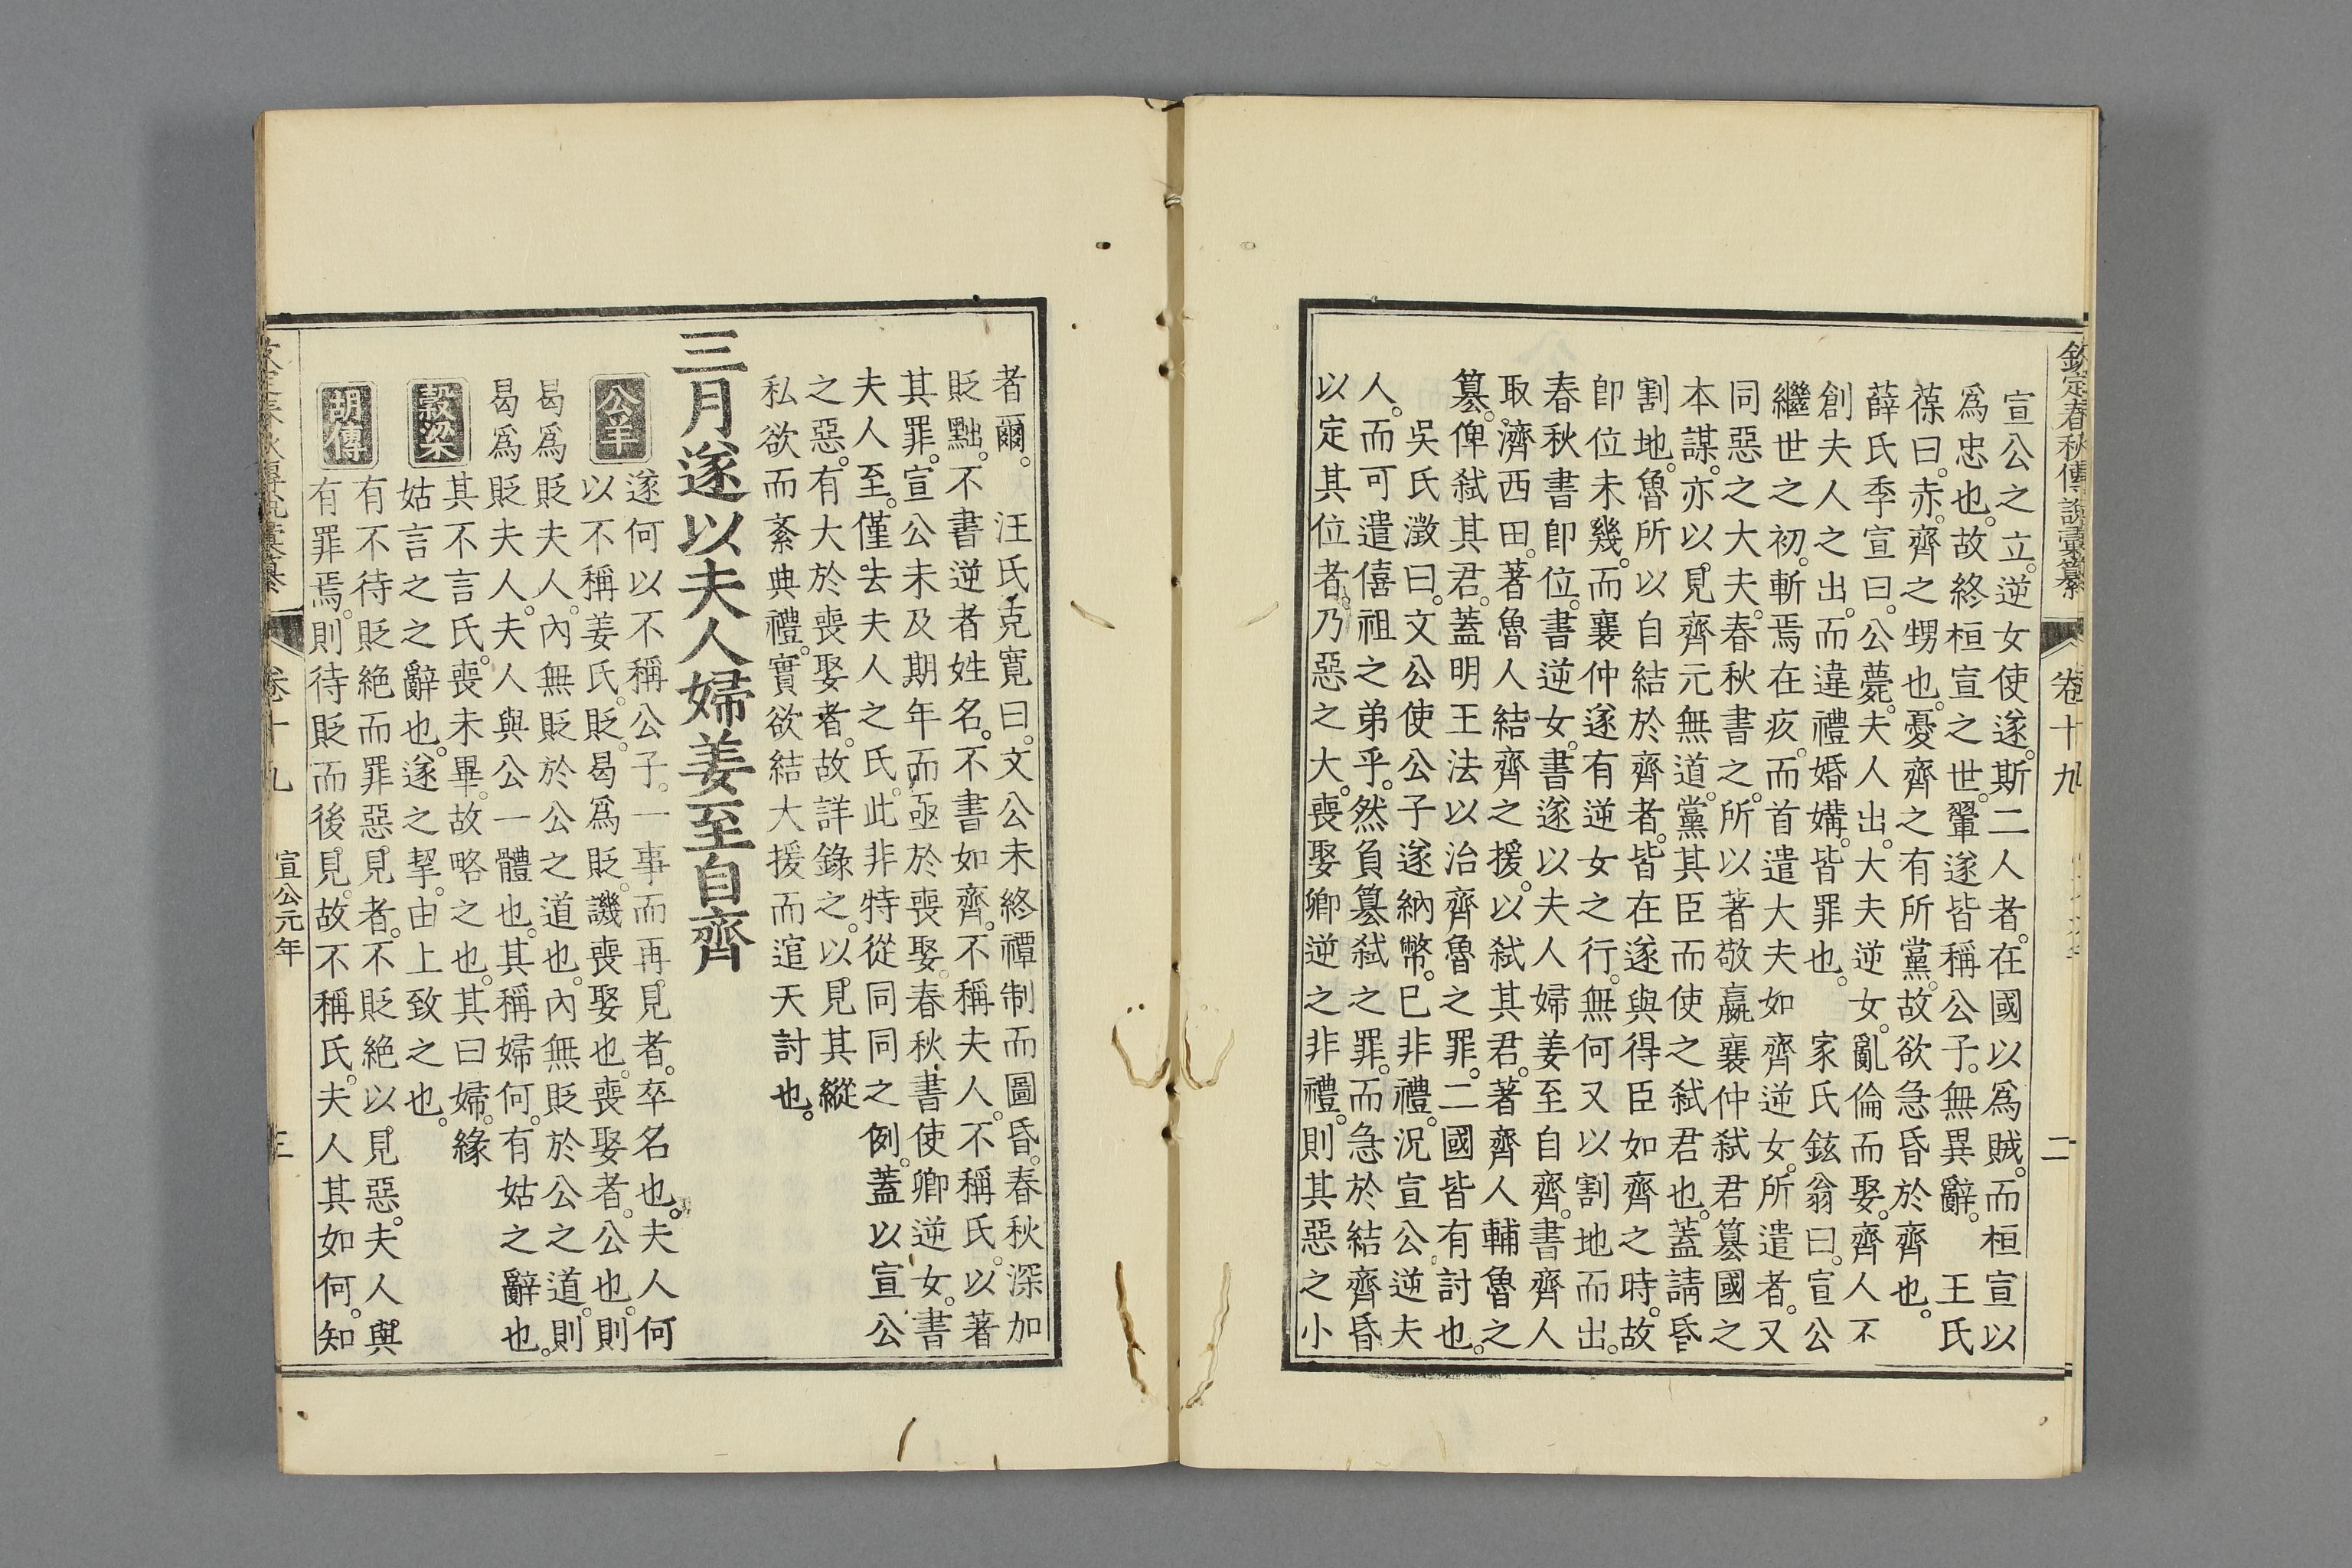 欽定春秋傳說彙纂 卷十九 二
宣公之立。逆女使遂。斯二人者。在國以爲賊。而桓宣以
爲忠也。故終桓宣之世。翬遂皆稱公子。無異辭。 王氏
葆曰。赤。齊之甥也。憂齊之有所黨。故欲急昏於齊也。
薛氏季宣曰。公薨。夫人出。大夫逆女。亂倫而娶。齊人不
創夫人之出。而違禮婚媾。皆罪也。 家氏鉉翁曰。宣公
繼世之初。斬焉在疚。而首遣大夫如齊逆女。所遣者。又
同惡之大夫。春秋書之。所以著敬嬴襄仲弑君簒國之
本謀。亦以見齊元無道。黨其臣而使之弑君也。蓋請昏
割地。魯所以自結於齊者。皆在遂與得臣如齊之時。故
卽位未幾。而襄仲遂有逆女之行。無何又以割地而出。
春秋書卽位。書逆女。書遂以夫人婦姜至自齊。書齊人
取濟西田。著魯人結齊之援。以弑其君。著齊人輔魯之
簒。俾弑其君。蓋明王法以治齊魯之罪。二國皆有討也。
吳氏澂曰。文公使公子遂納幣。巳非禮。況宣公逆夫
人。而可遣僖祖之弟乎。然負簒弑之罪。而急於結齊昏
以定其位者。乃惡之大。喪娶卿逆之非禮。則其惡之小
者爾。 汪氏克寬曰。文公未終禫制而圖昏。春秋深加
貶黜。不書逆者姓名。不書如齊。不稱夫人。不稱氏。以著
其罪。宣公未及期年而亟於喪娶。春秋書使卿逆女。書
夫人至。僅去夫人之氏。此非特從同同之例。蓋以宣公
之惡。有大於喪娶者。故詳錄之。以見其縱
私欲而紊典禮。實欲結大援而逭天討也。
三月遂以夫人婦姜至自齊
公羊 遂何以不稱公子。一事而再見者。卒名也。夫人何
以不稱姜氏。貶。曷爲貶。譏喪娶也。喪娶者。公也。則
曷爲貶夫人。內無貶於公之道也。內無貶於公之道。則
曷爲貶夫人。夫人與公一體也。其稱婦何。有姑之辭也。
穀梁 其不言氏。喪未畢。故略之也。其曰婦。緣
姑言之之辭也。遂之挈。由上致之也。
胡傳 有不待貶絶而罪惡見者。不貶絶以見惡。夫人與
有罪焉。則待貶而後見。故不稱氏。夫人其如何。知
卷十九 宣公元年 三